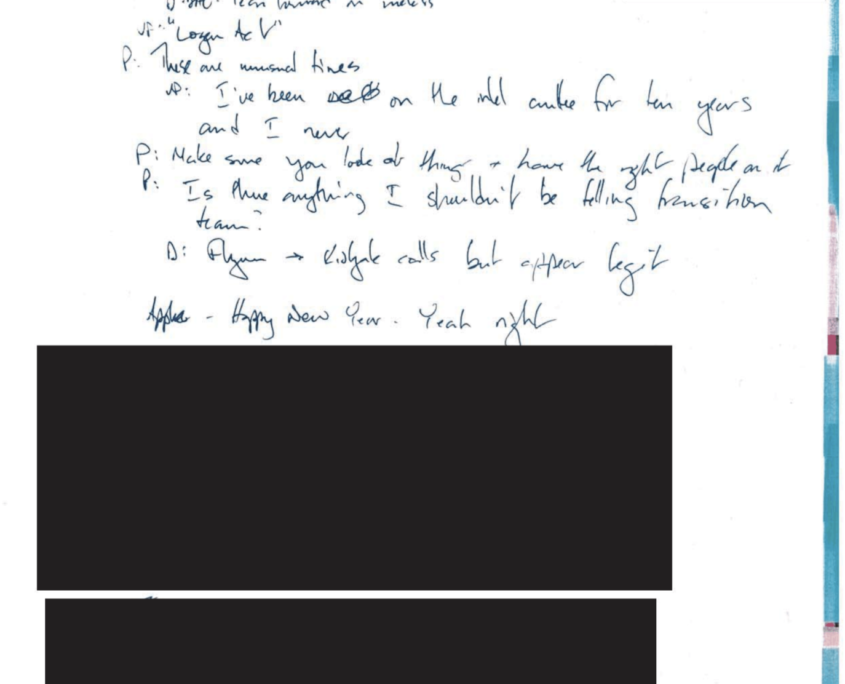 VP: "Logan Act"
P: These are unusual times
VP: I've been on the intel cmttee for ten years
and I never
P: Make sure you look at things + have the right people on it
P: Is there anything I shouldn't be telling transition
team?
D: Flynn → Kislyak calls but appear legit
- Happy New Year. Yeah right